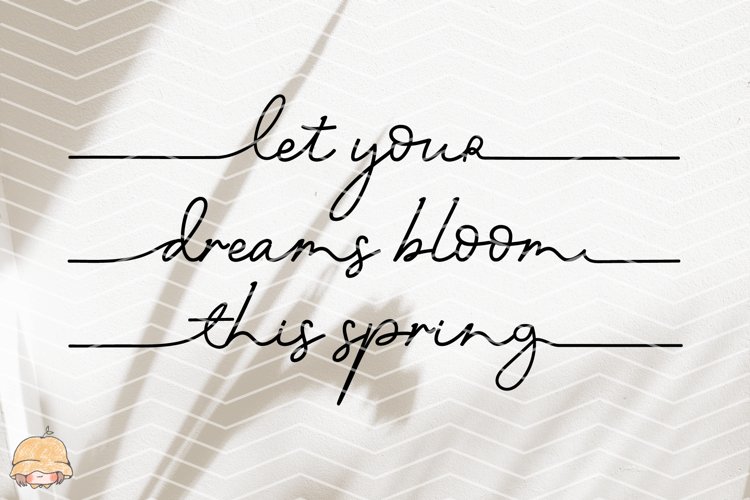 let your
dreams bloom
this spring